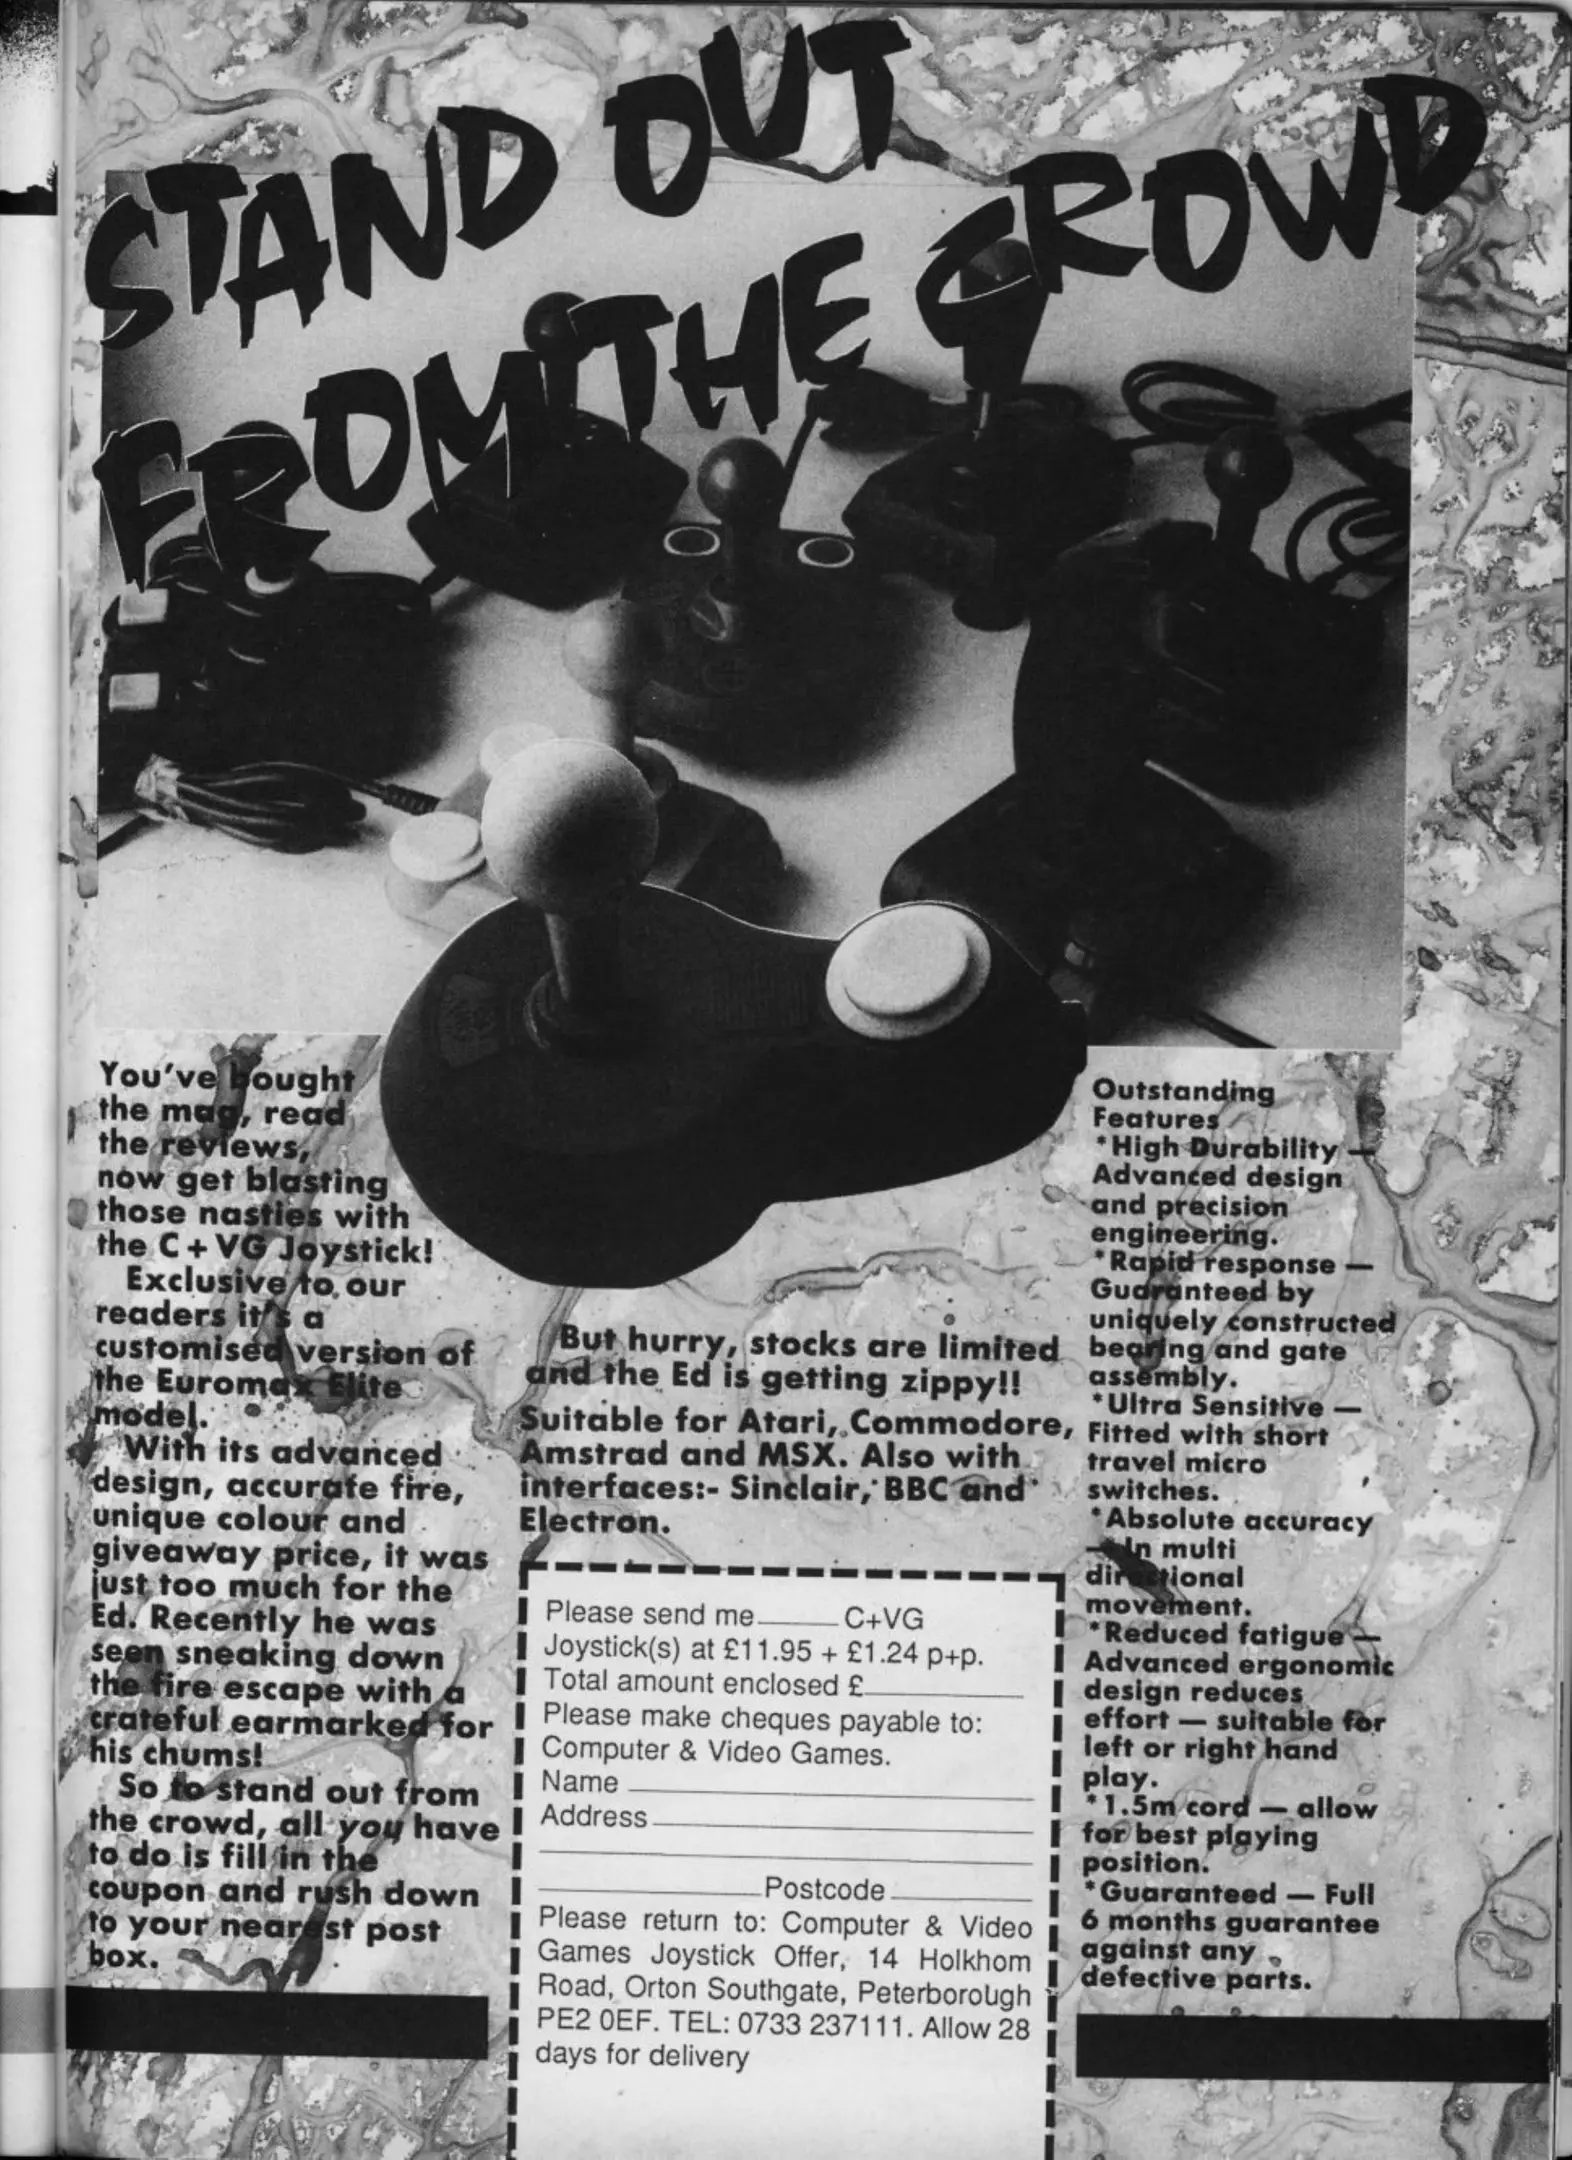 STAND OUT
FROM THE CROWD
You've bought
the mag, read
the reviews,
now get blasting
those nasties with
the C+VG Joystick!
Exclusive to our
readers it's a
customised version of
the Euromax Elite
model.
With its advanced
design, accurate fire,
unique colour and
giveaway price, it was
just too much for the
Ed. Recently he was
seen sneaking down
the fire escape with a
crateful earmarked for
his chums!
So to stand out from
the crowd, all you have
to do is fill in the
coupon and rush down
to your nearest post
box.
But hurry, stocks are limited
and the Ed is getting zippy!!
Suitable for Atari, Commodore,
Amstrad and MSX. Also with
interfaces:- Sinclair, BBC and
Electron.
Please send me C+VG
Joystick(s) at £11.95 + £1.24 p+p.
Total amount enclosed £
Please make cheques payable to:
Computer & Video Games.
Name
Address
Postcode
Please return to: Computer & Video
Games Joystick Offer, 14 Holkhom
Road, Orton Southgate, Peterborough
PE2 0EF. TEL: 0733 237111. Allow 28
days for delivery
Outstanding
Features
*High Durability —
Advanced design
and precision
engineering.
*Rapid response —
Guaranteed by
uniquely constructed
bearing and gate
assembly.
*Ultra Sensitive —
Fitted with short
travel micro
switches.
*Absolute accuracy
— In multi
directional
movement.
*Reduced fatigue —
Advanced ergonomic
design reduces
effort — suitable for
left or right hand
play.
*1.5m cord — allow
for best playing
position.
*Guaranteed — Full
6 months guarantee
against any
defective parts.